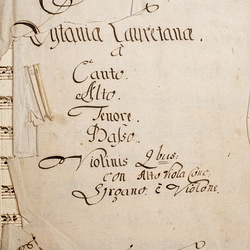 Lytania Lauretana.
à
Canto.
Alto.
Tenore.
Basso.
Violinis 2bus:
con Alto Viola Conc:
Organo è Violone.